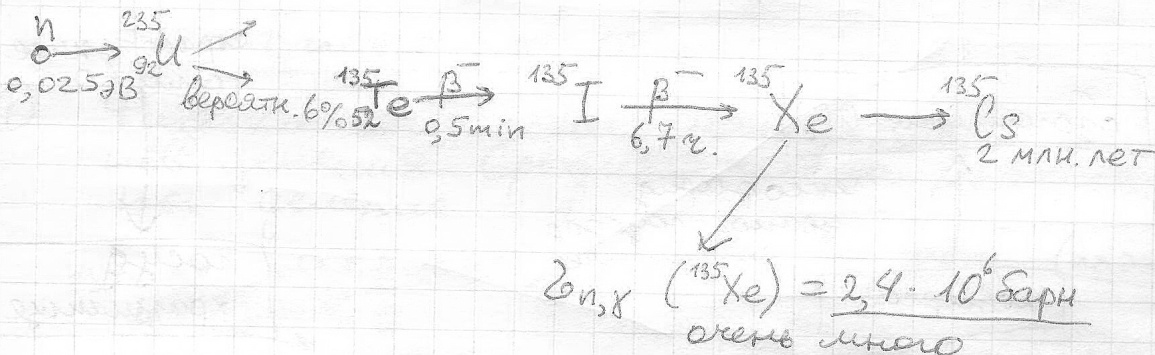 n → ²³⁵₉₂U
0,025эВ
вероятн. 6% ¹³⁵₅₂Te —β⁻→ ¹³⁵I —β⁻→ ¹³⁵Xe → ¹³⁵Cs
0,5min 6,7ч. 2 млн. лет
σn,γ (¹³⁵Xe) = 2,4 · 10⁶ барн
очень много